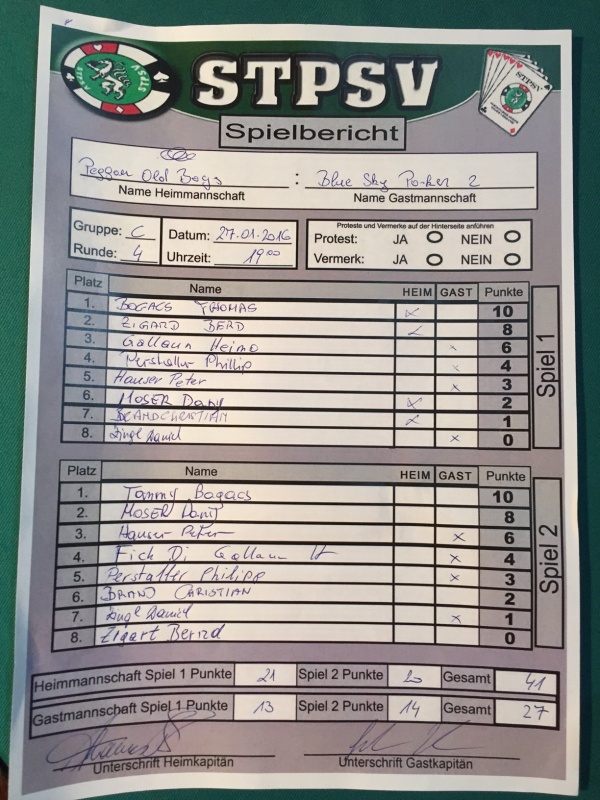 STPSV
STPSV
STPSV
Spielbericht
Peggau Old Boys : Blue Sky Poker 2
Name Heimmannschaft Name Gastmannschaft
Gruppe: C Datum: 27.01.2016
Runde: 4 Uhrzeit: 19 00
Proteste und Vermerke auf der Hinterseite anführen
Protest: JA O NEIN O
Vermerk: JA O NEIN O
Platz Name HEIM GAST Punkte
1. BOGACS THOMAS x 10
2. ZIGARD BERD x 8
3. Gallaun Heimo x 6
4. Perstaller Phillip x 4
5. Hauser Peter x 3
6. MOSER Dany x 2
7. BRANDCHRISTIAN x 1
8. Zingl Daniel x 0
Spiel 1
Platz Name HEIM GAST Punkte
1. Tommy Bogacs 10
2. MOSER Dany 8
3. Hauser Peter x 6
4. Gallaun H x 4
5. Perstaller Philipp x 3
6. BRAND CHRISTIAN 2
7. Zingl Daniel x 1
8. Zigart Bernd 0
Spiel 2
Heimmannschaft Spiel 1 Punkte 21 Spiel 2 Punkte 20 Gesamt 41
Gastmannschaft Spiel 1 Punkte 13 Spiel 2 Punkte 14 Gesamt 27
Unterschrift Heimkapitän Unterschrift Gastkapitän